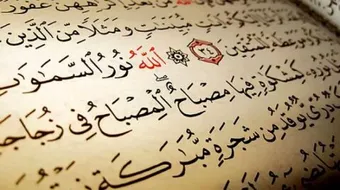 غَفُورٌ
مُّبَيِّنَٰتٍ وَمَثَلًا مِّنَ ٱلَّذِينَ
لِّلْمُتَّقِينَ ٣٤ ٱللَّهُ نُورُ ٱلسَّمَٰوَٰتِ
كَمِشْكَوٰةٍ فِيهَا مِصْبَاحٌ ٱلْمِصْبَاحُ فِى زُجَاجَةٍ
دُرِّىٌّ يُوقَدُ مِن شَجَرَةٍ مُّبَٰرَكَةٍ